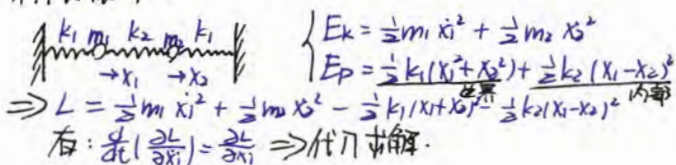 k₁ m₁ k₂ m₂ k₁
→x₁ →x₂
{ E_K = ½m₁ẋ₁² + ½m₂ẋ₂²
E_P = ½k₁(x₁²+x₂²) + ½k₂(x₁-x₂)²
内部
⇒ L = ½m₁ẋ₁² + ½m₂ẋ₂² - ½k₁(x₁+x₂)² - ½k₂(x₁-x₂)²
有: d/dt(∂L/∂ẋᵢ) = ∂L/∂xᵢ ⇒ 代入求解.